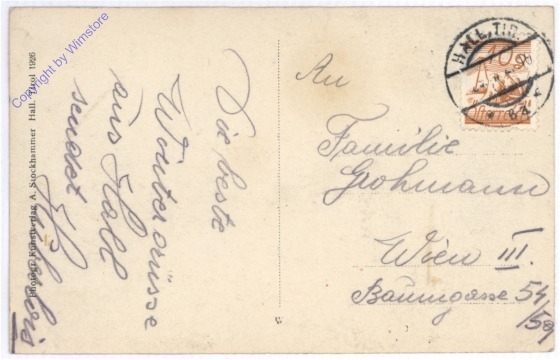 Copyright by Wimstore
Photogr. Kunstverlag A. Stockhammer Hall. Tirol 1926
Die beste
aus Hall
sendet
HALL, TIR
10
An
Familie
Grohmann
Wien III.
Baumgasse 54
/59